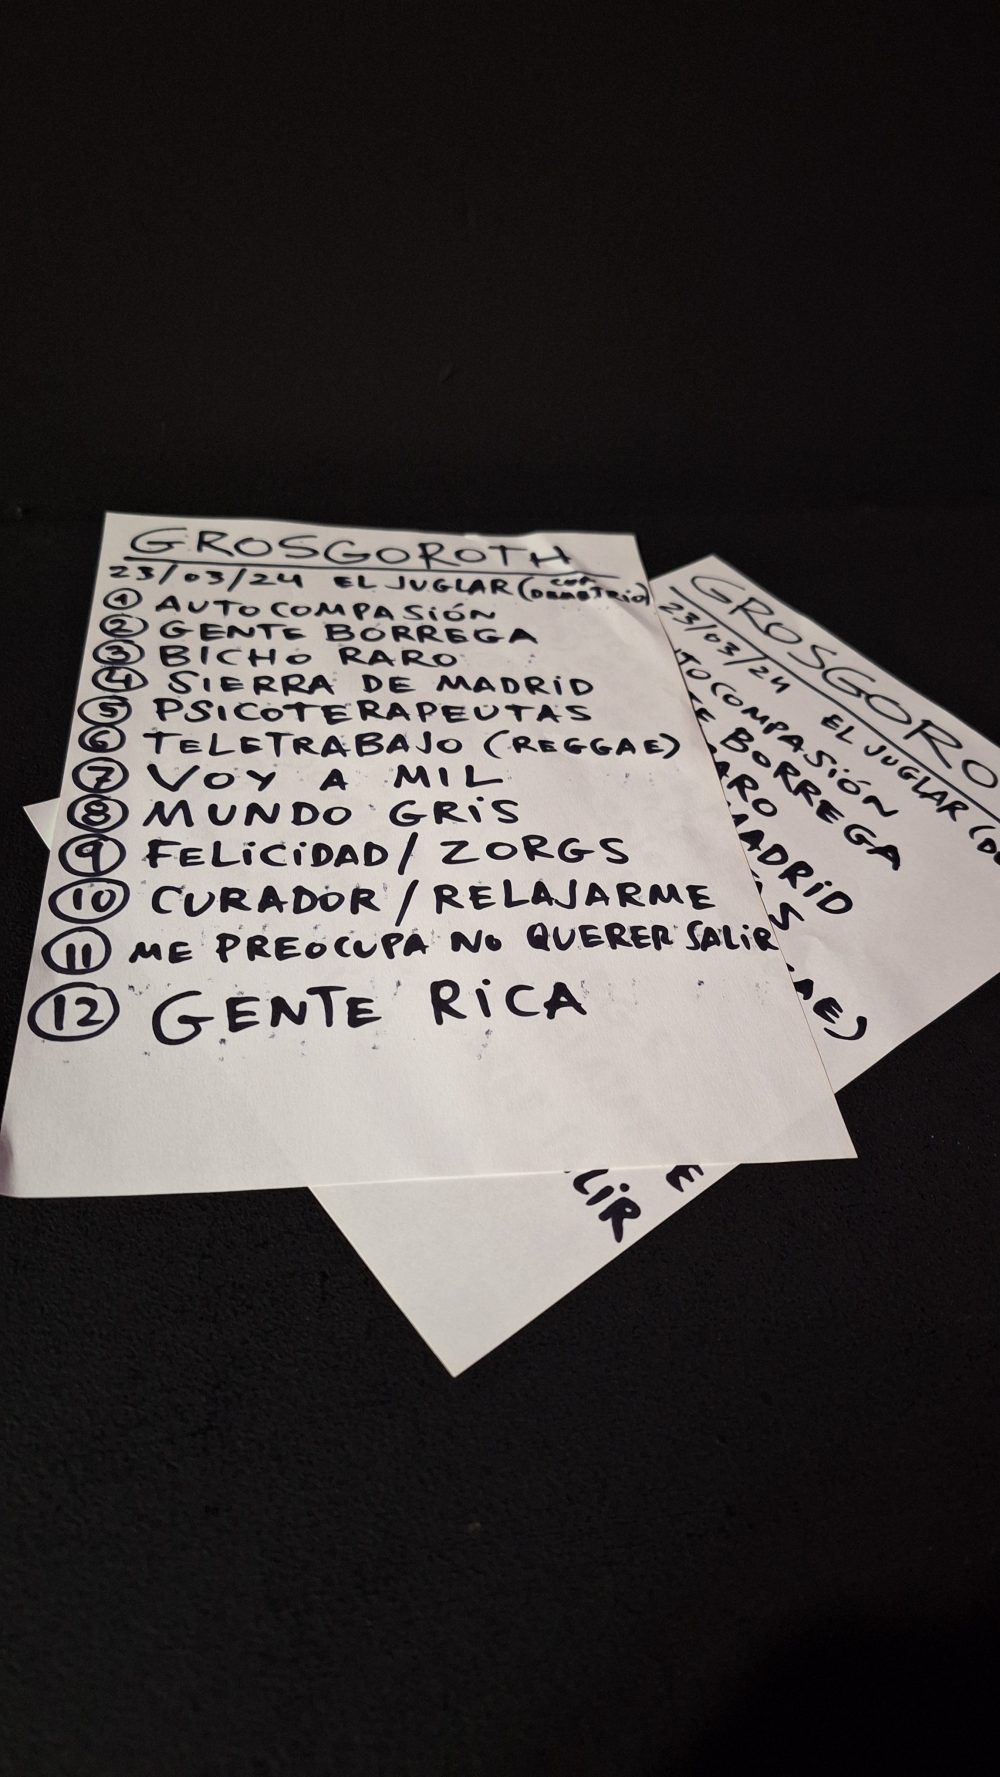 GROSGOROTH
23/03/24 EL JUGLAR (CON DEMETRIO)
1 AUTOCOMPASIÓN
2 GENTE BORREGA
3 BICHO RARO
4 SIERRA DE MADRID
5 PSICOTERAPEUTAS
6 TELETRABAJO (REGGAE)
7 VOY A MIL
8 MUNDO GRIS
9 FELICIDAD / ZORGS
10 CURADOR / RELAJARME
11 ME PREOCUPA NO QUERER SALIR
12 GENTE RICA
GROSGORO
23/03/24 EL JUGLAR (DE
TOCOMPASIÓN
E BORREGA
ARO
MADRID
S
AE)
E
LIR